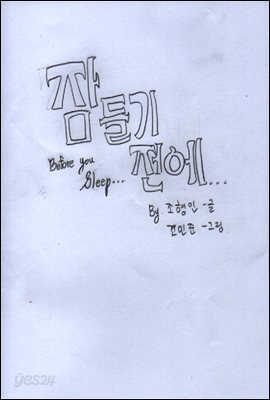 잠들기
Before you
Sleep...
전에...
By. 조형인 -글
조민준 -그림
yes24